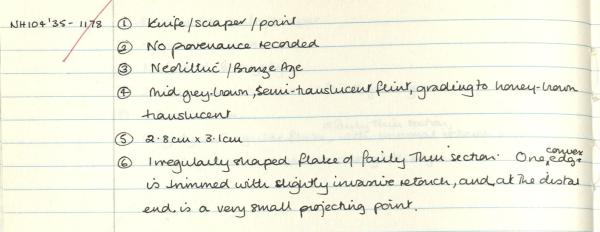 NH104'35-1178 ① Knife/scraper/point
② No provenance recorded
③ Neolithic/Bronze Age
④ Mid grey-brown, semi-translucent flint, grading to honey-brown
translucent
⑤ 2.8cm x 3.1cm
⑥ Irregularly shaped flake of fairly thin section. One convex edge
is trimmed with slightly invasive retouch, and, at the distal
end, is a very small projecting point.